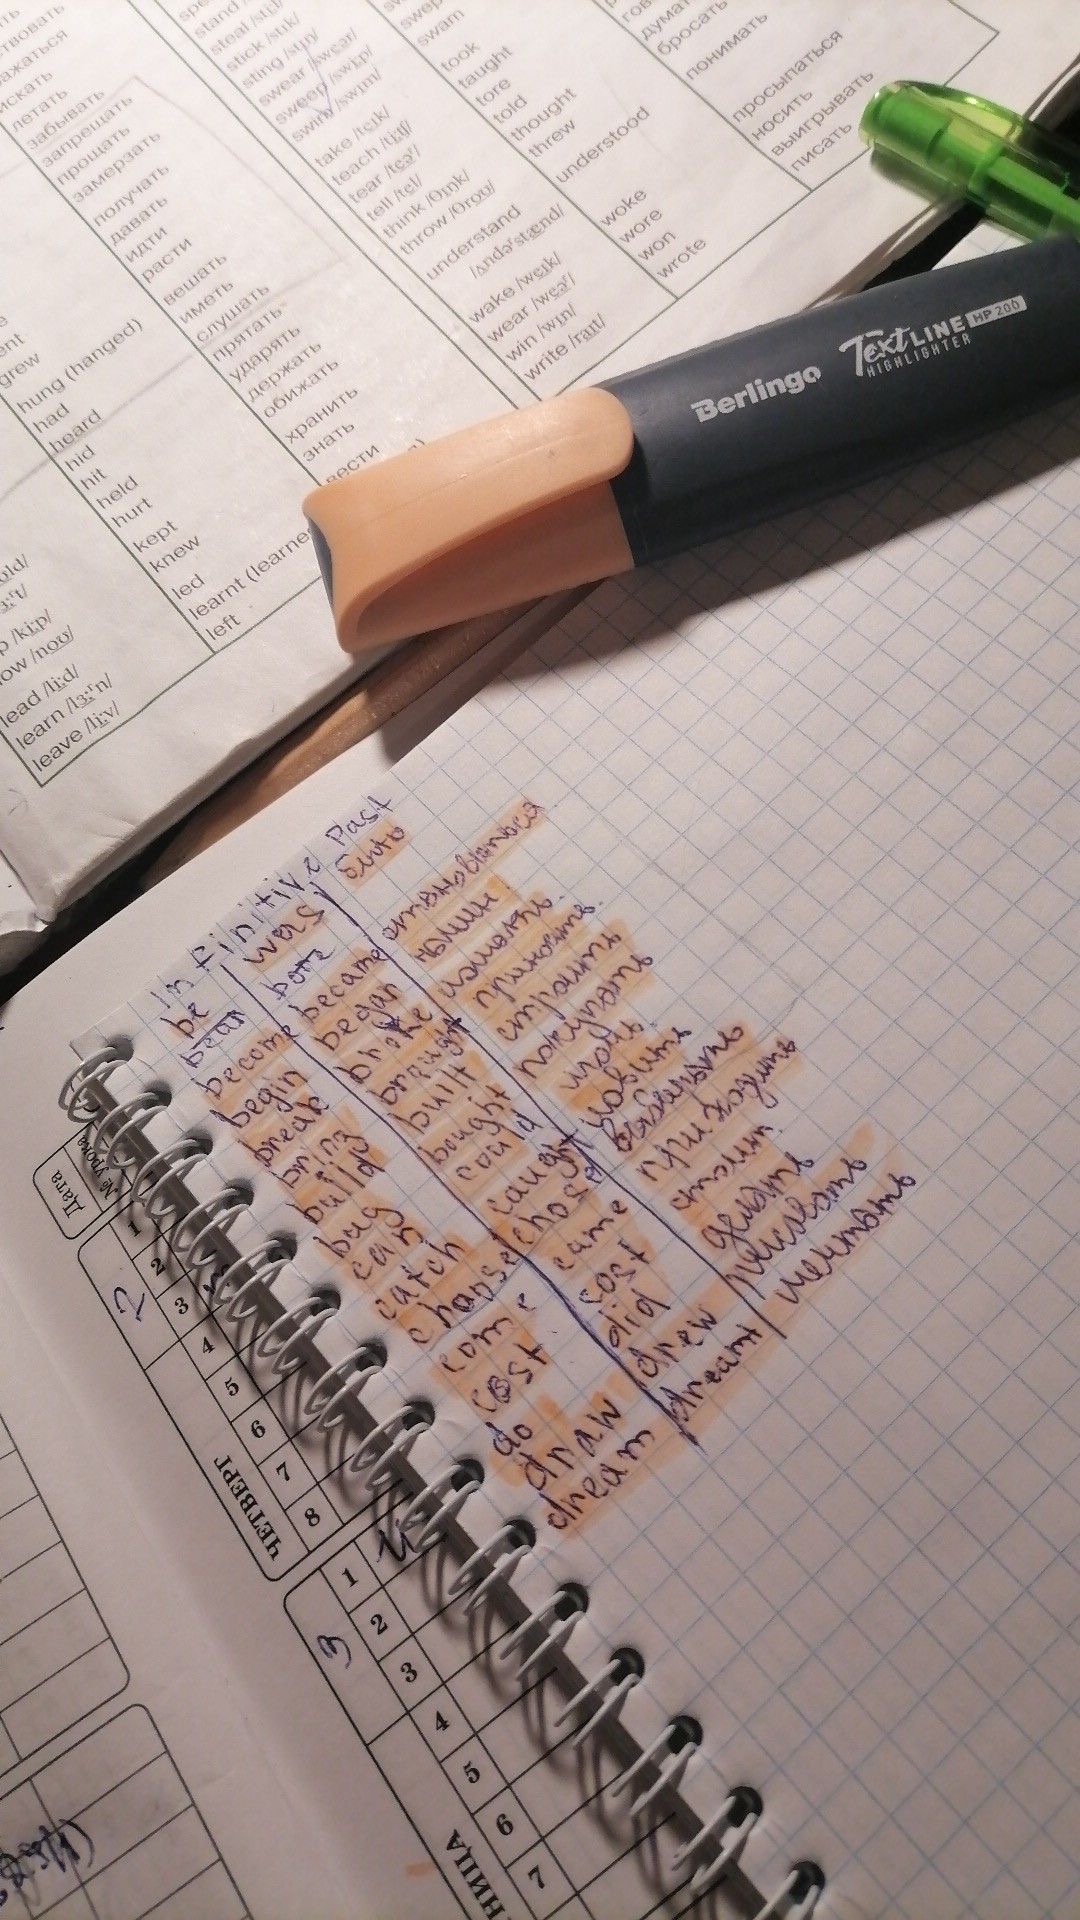 spe
stand /stæ
steal /sti:l/
stick /stɪk/
sting /stɪŋ/
swear /sweəʳ/
sweep /swi:p/
swim /swɪm/
take /teɪk/
teach /ti:tʃ/
tear /teəʳ/
tell /tel/
think /θɪŋk/
throw /θroʊ/
understand
/ʌndəʳstænd/
wake /weɪk/
wear /weəʳ/
win /wɪn/
write /raɪt/
swep
swam
took
taught
tore
told
thought
threw
understood
woke
wore
won
wrote
гов
думат
бросать
понимать
просыпаться
носить
выигрывать
писать
искать
летать
забывать
запрещать
прощать
замерзать
получать
давать
идти
расти
вешать
иметь
слушать
прятать
ударять
держать
обижать
хранить
знать
вести
grew
hung (hanged)
had
heard
hid
hit
held
hurt
kept
knew
led
learnt (learne
left
lead /li:d/
learn /lɜ:ʳn/
leave /li:v/
Berlingo TextLINE HP 200
HIGHLIGHTER
Infinitive Past
be was быть
bear bore
become became становиться
begin began
break broke
bring brought приносить
build built строить
buy bought покупать
can could
catch caught ловить
choose chose выбирать
come came приходить
cost cost
do did делать
draw drew рисовать
dream dreamt мечтать
Дата
№ урока
1
2
3
4
5
6
7
8
2
ЧЕТВЕРГ
1
2
3
4
5
6
7
3
НИЦА